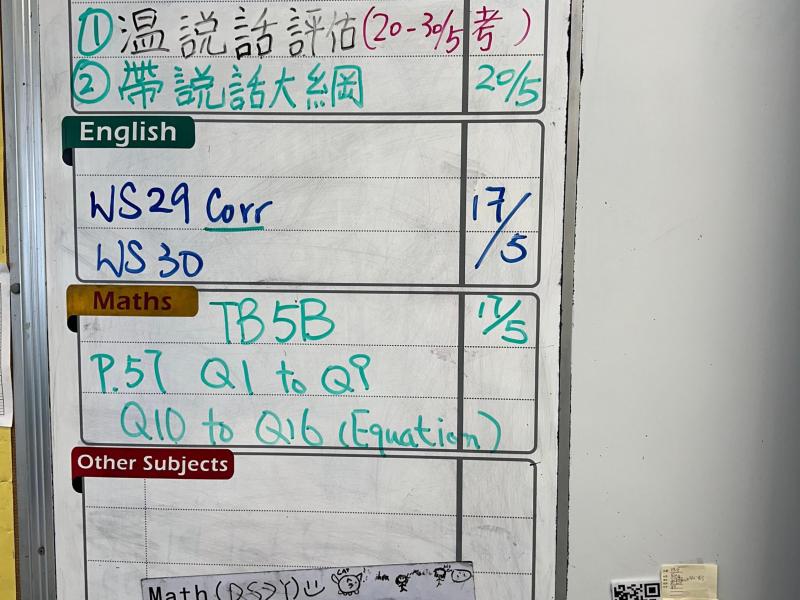 ① 温說話評估(20-30/5考)
② 帶說話大綱 20/5
English
WS29 Corr 17/5
WS30
Maths
TB5B 17/5
P.57 Q1 to Q9
Q10 to Q16 (Equation)
Other Subjects
Math